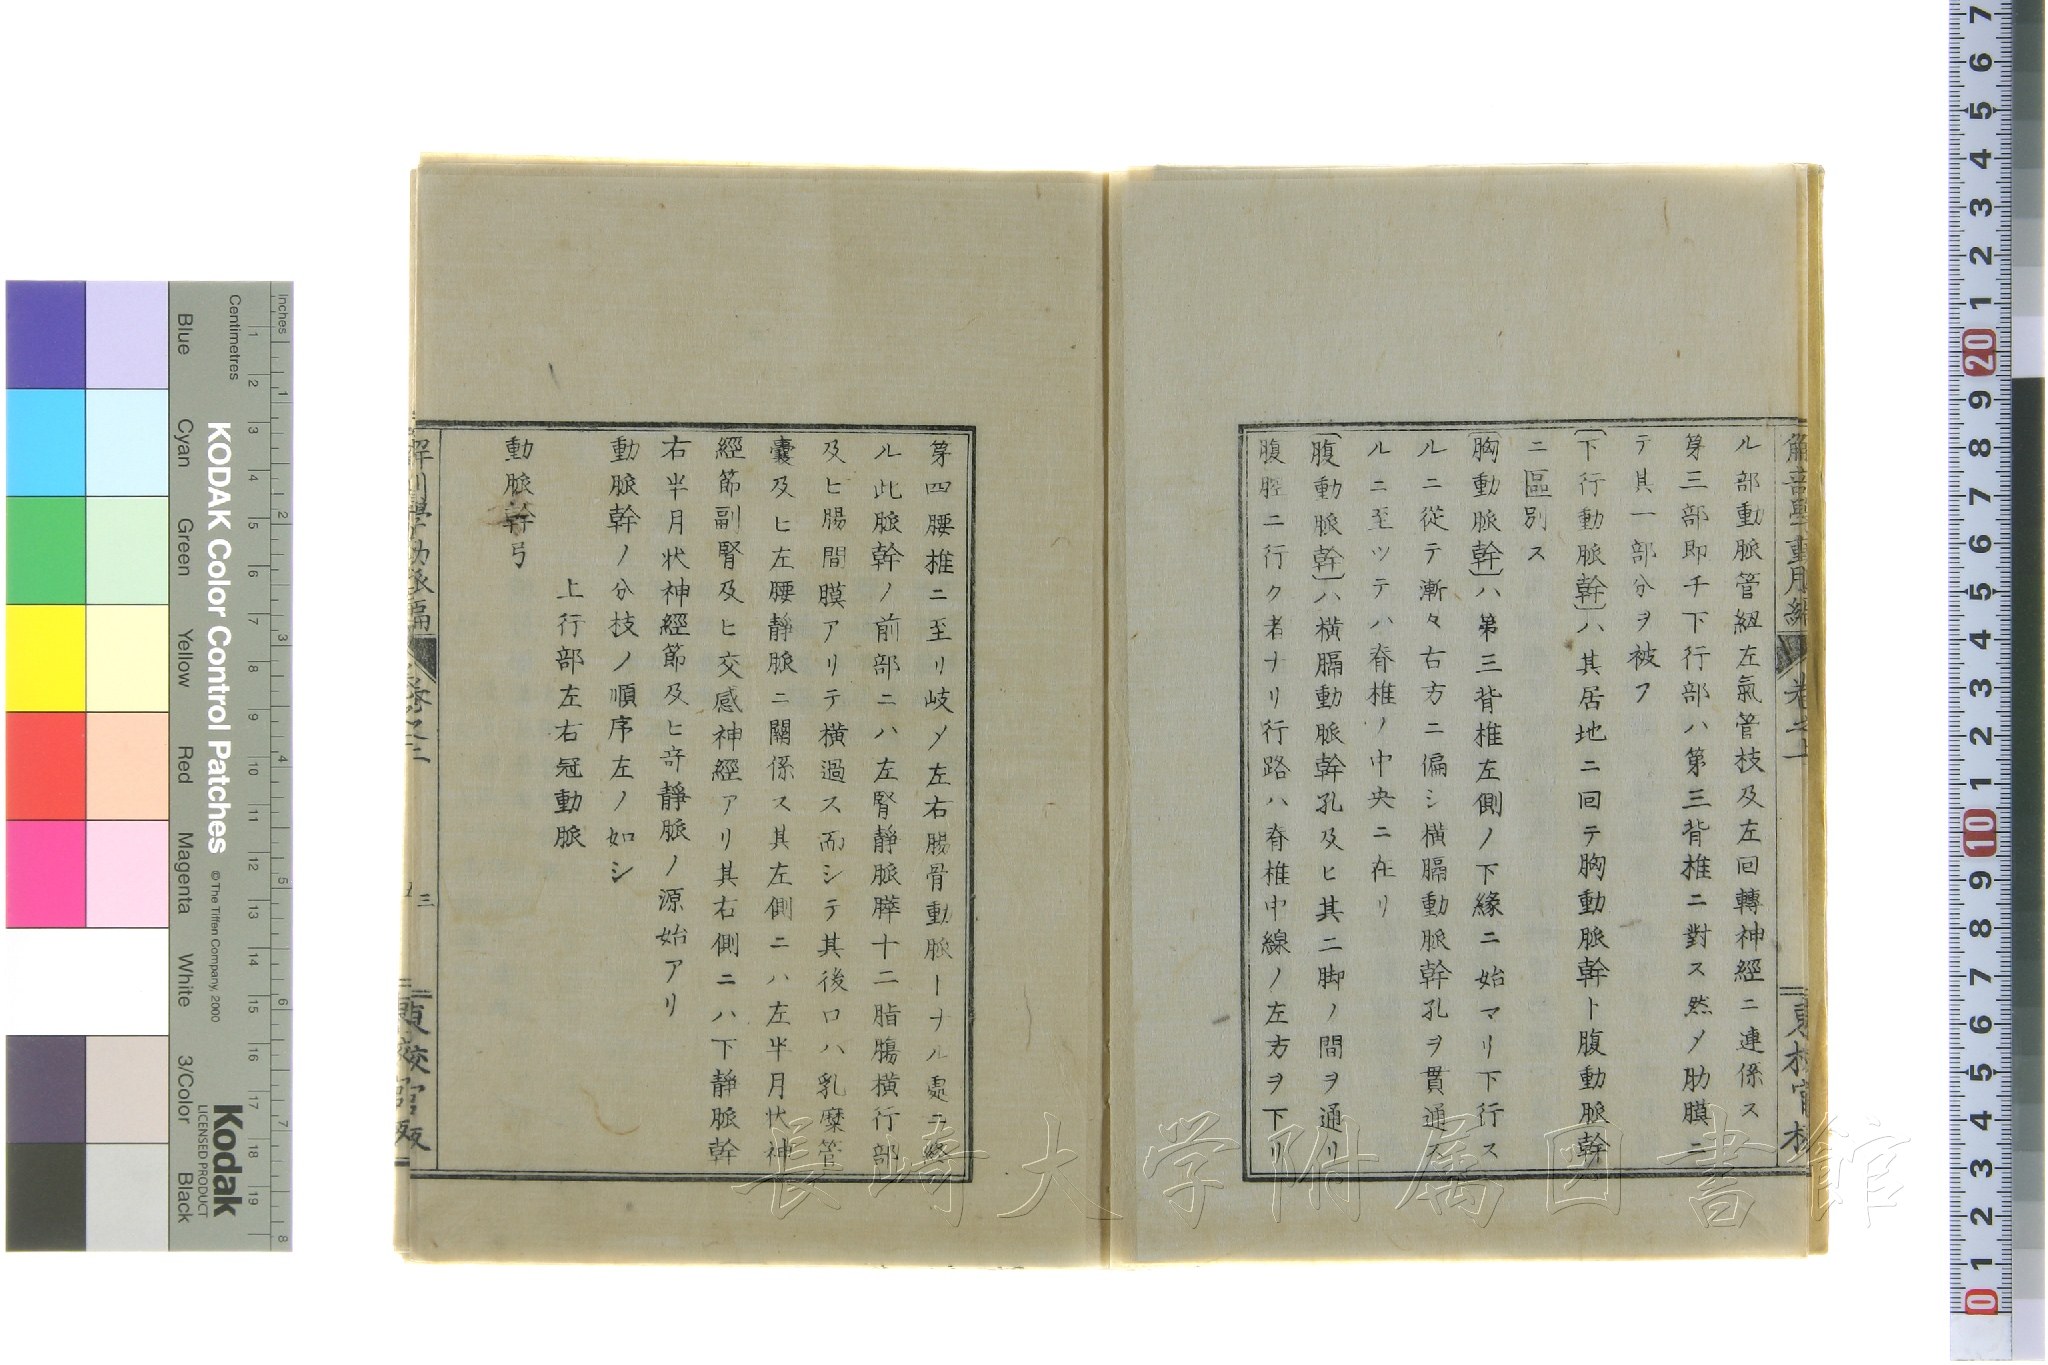 ル部動脈管紐左氣管枝及左回轉神經ニ連係ス
第三部即チ下行部ハ第三背椎ニ對ス然〆肋膜ニ
テ其一部分ヲ被フ
〔下行動脈幹〕ハ其居地ニ回テ胸動脈幹ト腹動脈幹
ニ區別ス
〔胸動脈幹〕ハ第三背椎左側ノ下緣ニ始マリ下行ス
ルニ従テ漸々右方ニ偏シ横膈動脈幹孔ヲ貫通ス
ルニ至ツテハ脊椎ノ中央ニ在リ
〔腹動脈幹〕ハ横膈動脈幹孔及ヒ其二脚ノ間ヲ通リ
腹腔ニ行ク者ナリ行路ハ脊椎中線ノ左方ヲ下リ
第四腰椎ニ至リ岐〆左右腸骨動脈ーナル處ニ終
ル此脈幹ノ前部ニハ左腎靜脈膵十二脂膓横行部
及ヒ膓間膜アリテ横過ス而シテ其後口ハ乳糜管
囊及ヒ左腰靜脈ニ關係ス其左側ニハ左半月状神
經節副腎及ヒ交感神經アリ其右側ニハ下靜脈幹
右半月状神經節及ヒ奇靜脈ノ源始アリ
動脈幹ノ分枝ノ順序左ノ如シ
上行部左右冠動脈
動脈幹弓
卷之二
三
KODAK Color Control Patches
© The Tiffen Company, 2000
Kodak
LICENSED PRODUCT
Inches
Centimetres
Blue
Cyan
Green
Yellow
Red
Magenta
White
3/Color
Black
長崎大学附属図書館